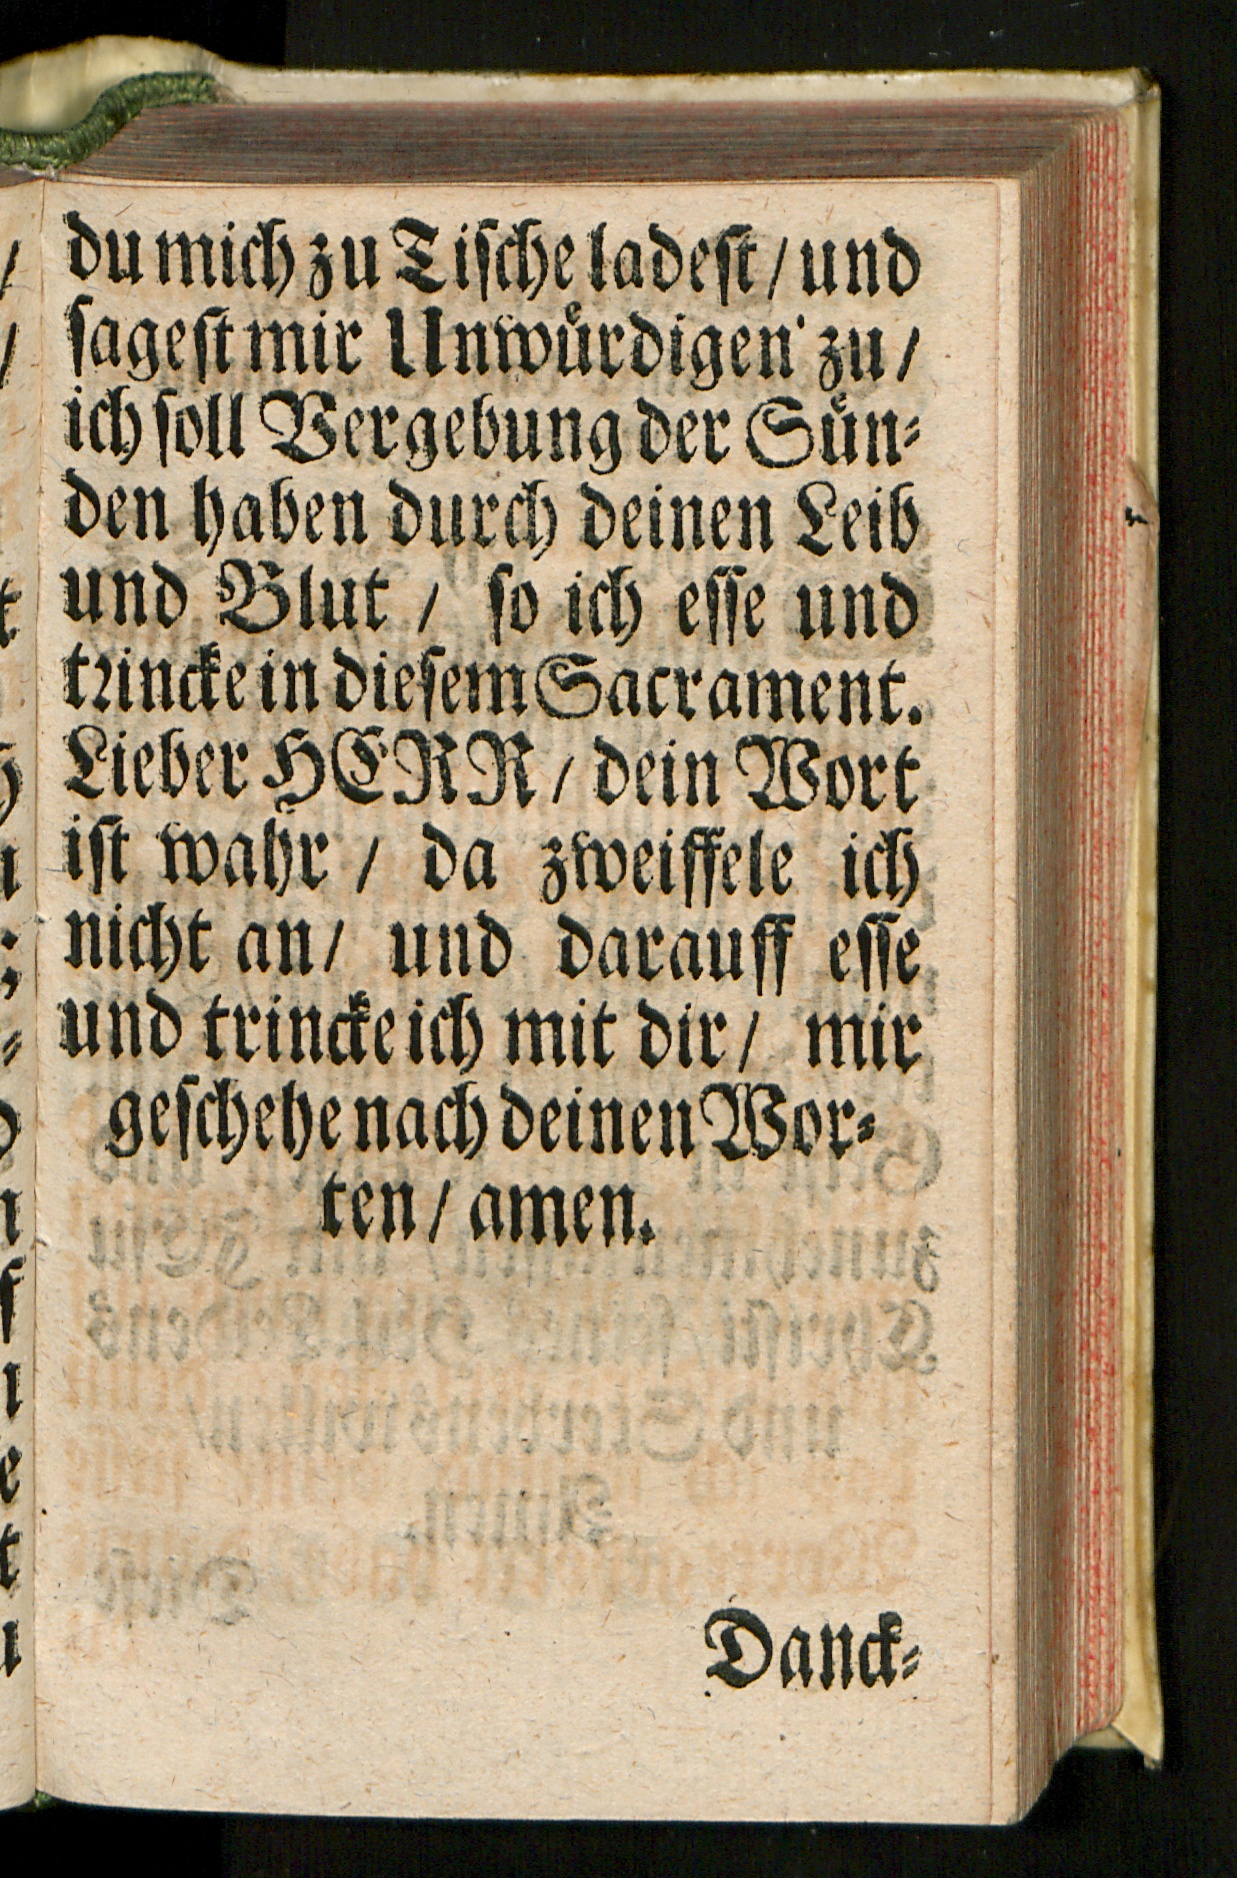 du mich zu Tische ladest / und
sagest mir Unwürdigen zu /
ich soll Vergebung der Sün-
den haben durch deinen Leib
und Blut / so ich esse und
trincke in diesem Sacrament.
Lieber HERR / dein Wort
ist wahr / da zweiffele ich
nicht an / und darauff esse
und trincke ich mit dir / mir
geschehe nach deinen Wor-
ten / amen.
Danck-